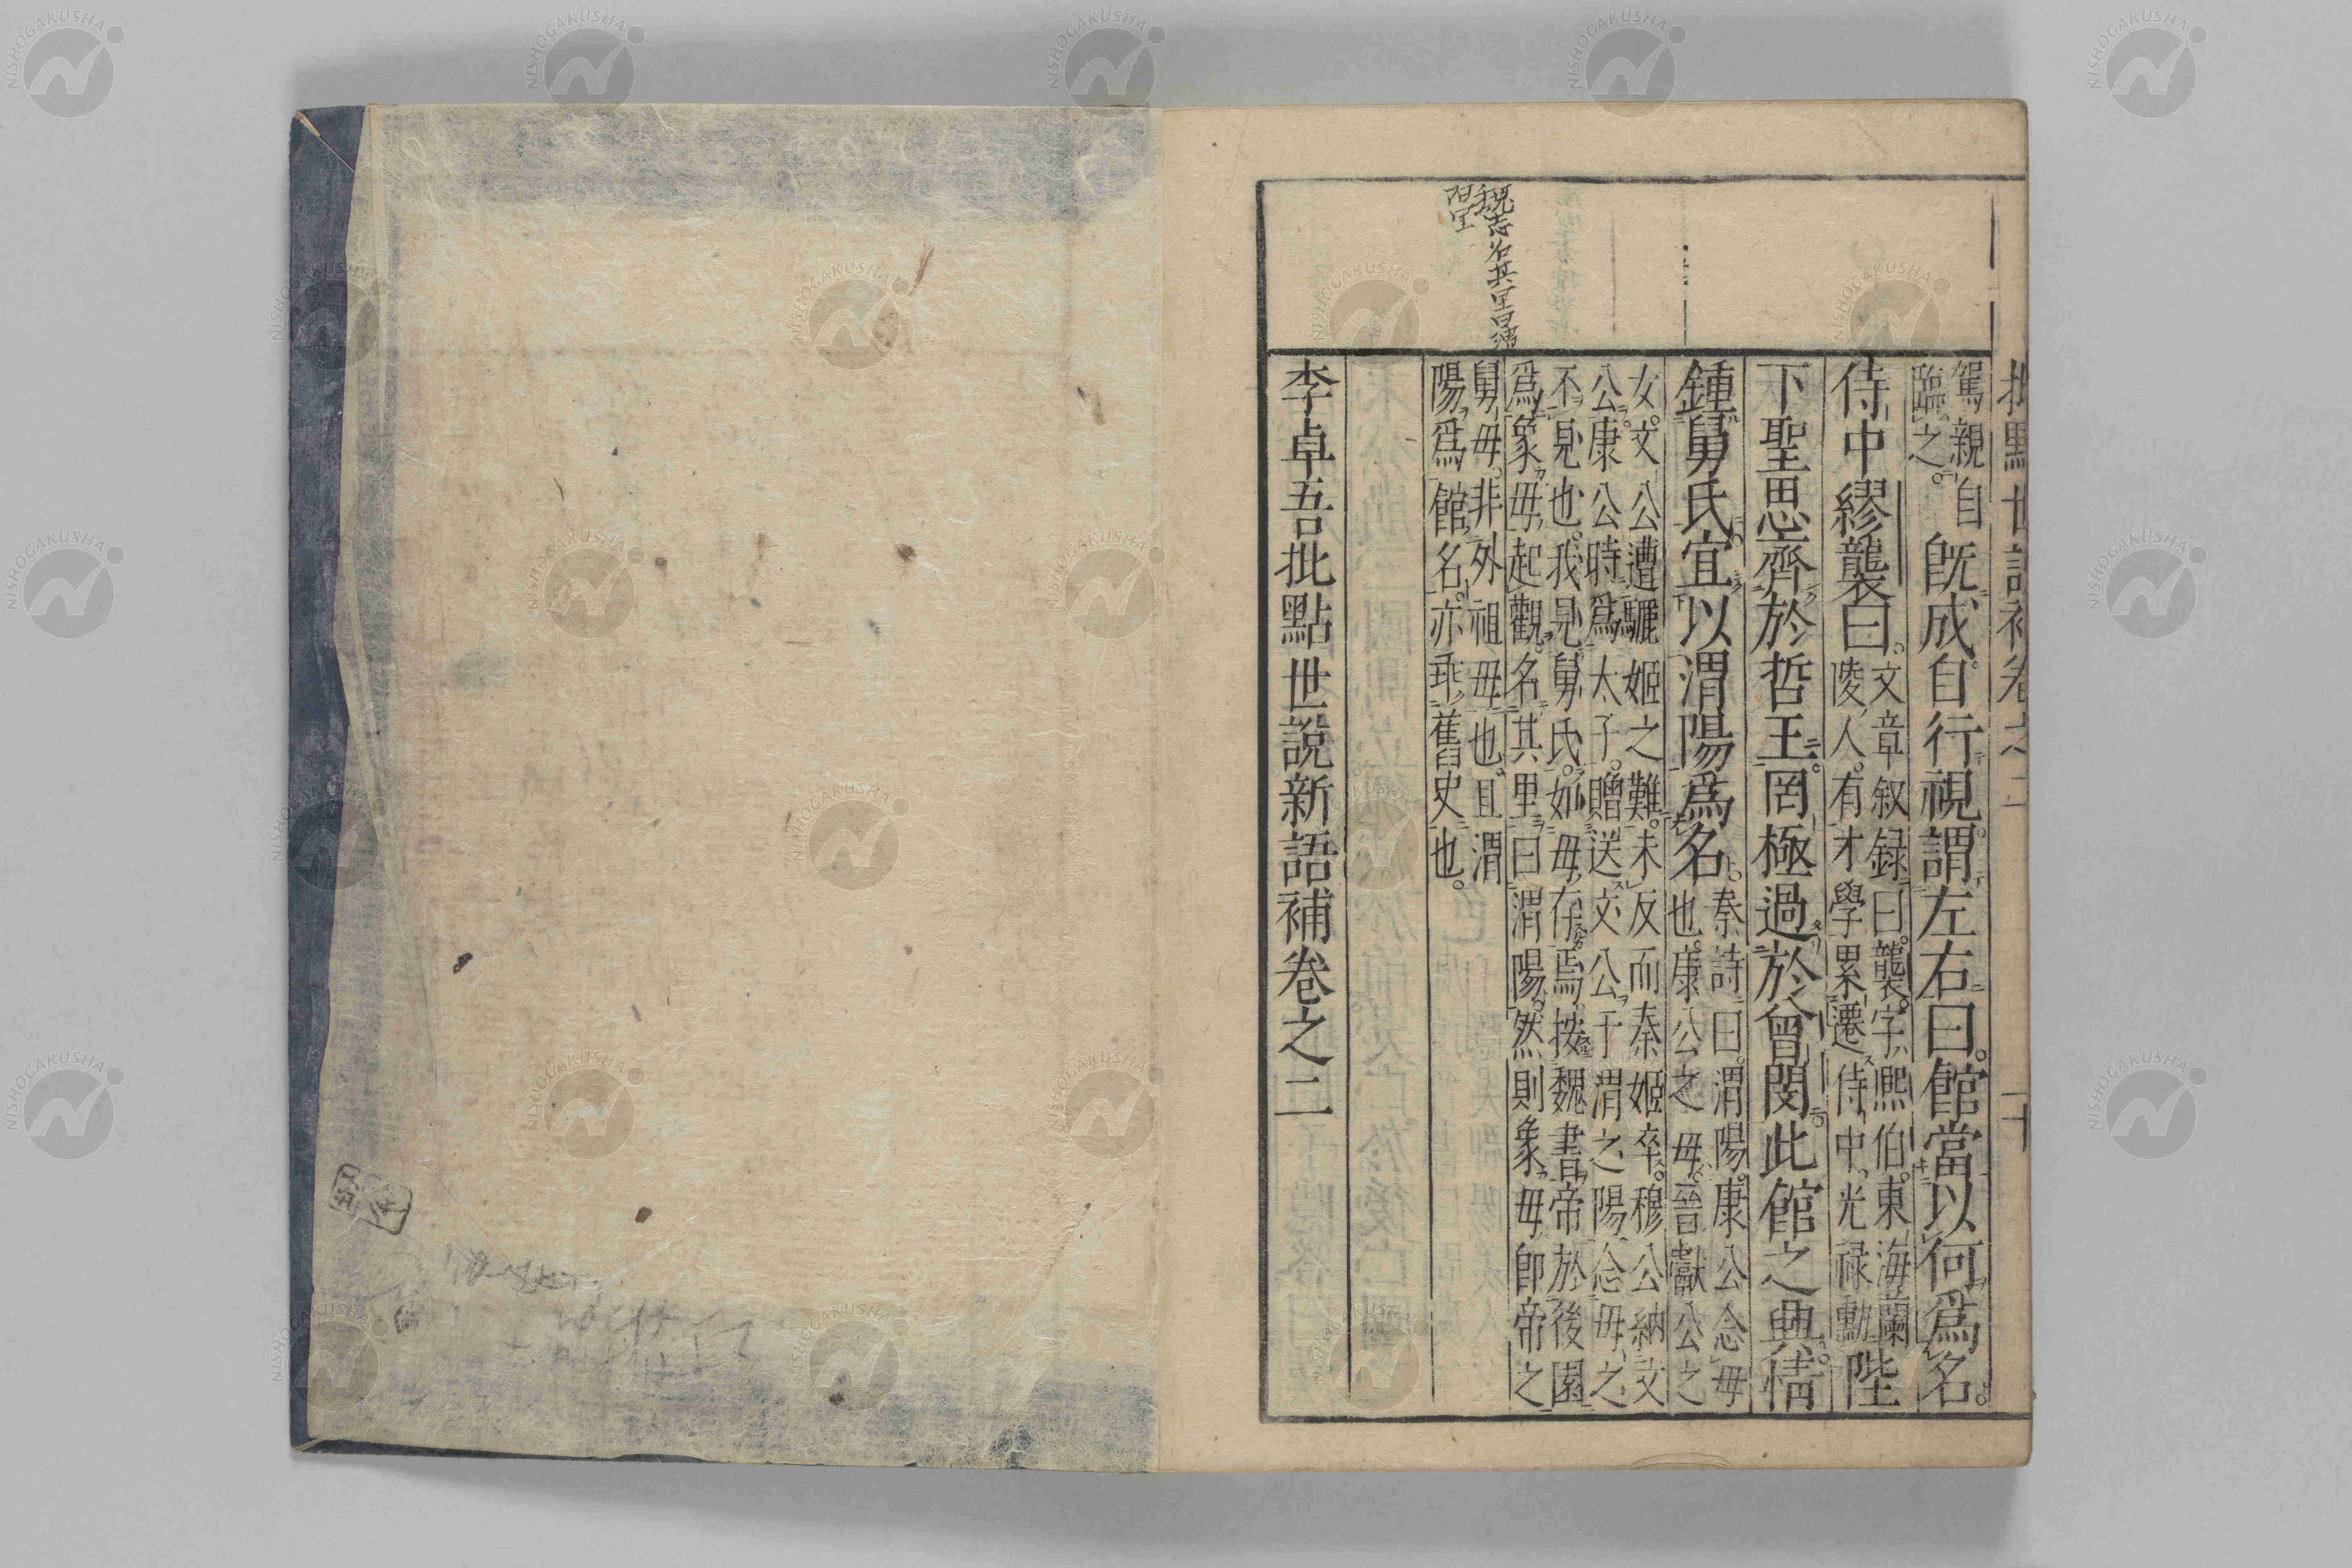 批點世說補卷之二 二十
駕親自
臨之。
既成。自行視。謂左右曰。館當以何爲名。
侍中繆襲曰。
文章叙録曰。襲字熙伯。東海蘭
陵人。有才學。累遷侍中光禄勳
陛
下聖思齊於哲王。罔極過於曾閔。此館之興。情
鍾舅氏。宜以渭陽爲名。
秦詩曰。渭陽。康公念母
也。康公之母。晉獻公之
女。文公遭驪姬之難。未反而秦姬卒。穆公納文
公。康公時爲太子。贈送文公于渭之陽。念母之
不見也。我見舅氏。如母存焉。按魏書。帝於後園
爲象母起觀。名其里曰渭陽。然則象母即帝之
舅母。非外祖母也。且渭
陽爲館名。亦乖舊史也。
魏志名其里曰渭
陽里
李卓吾批點世說新語補卷之二
NISHOGAKUSHA